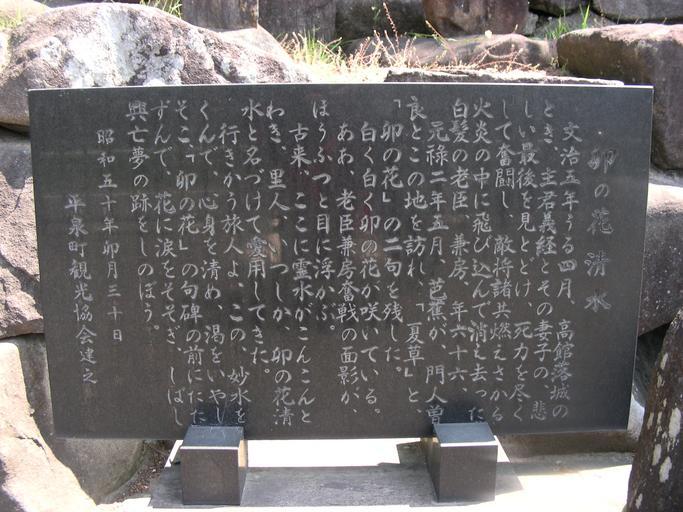 卯の花清水
文治五年うる四月、高館落城の
とき、主君義経とその妻子の、悲
しい最後を見とどけ、死力を尽く
して奮闘し、敵将諸共燃えさかる
火炎の中に飛び込んで消え去った
白髪の老臣、兼房、年六十六。
元禄二年五月、芭蕉が、門人曽
良とこの地を訪れ、「夏草」と、
「卯の花」の二句を残した。
白く白く卯の花が咲いている。
ああ、老臣兼房奮戦の面影が、
ほうふつと目に浮かぶ。
古来、ここに霊水がこんこんと
わき、里人、いつしか、卯の花清
水と名づけて愛用してきた。
行きかう旅人よ、この、妙水を
くんで、心身を清め、渇をいやし
そこ「卯の花」の句碑の前にたた
ずんで、花に涙をそそぎ、しばし
興亡夢の跡をしのぼう。
昭和五十年卯月三十日
平泉町観光協会建之